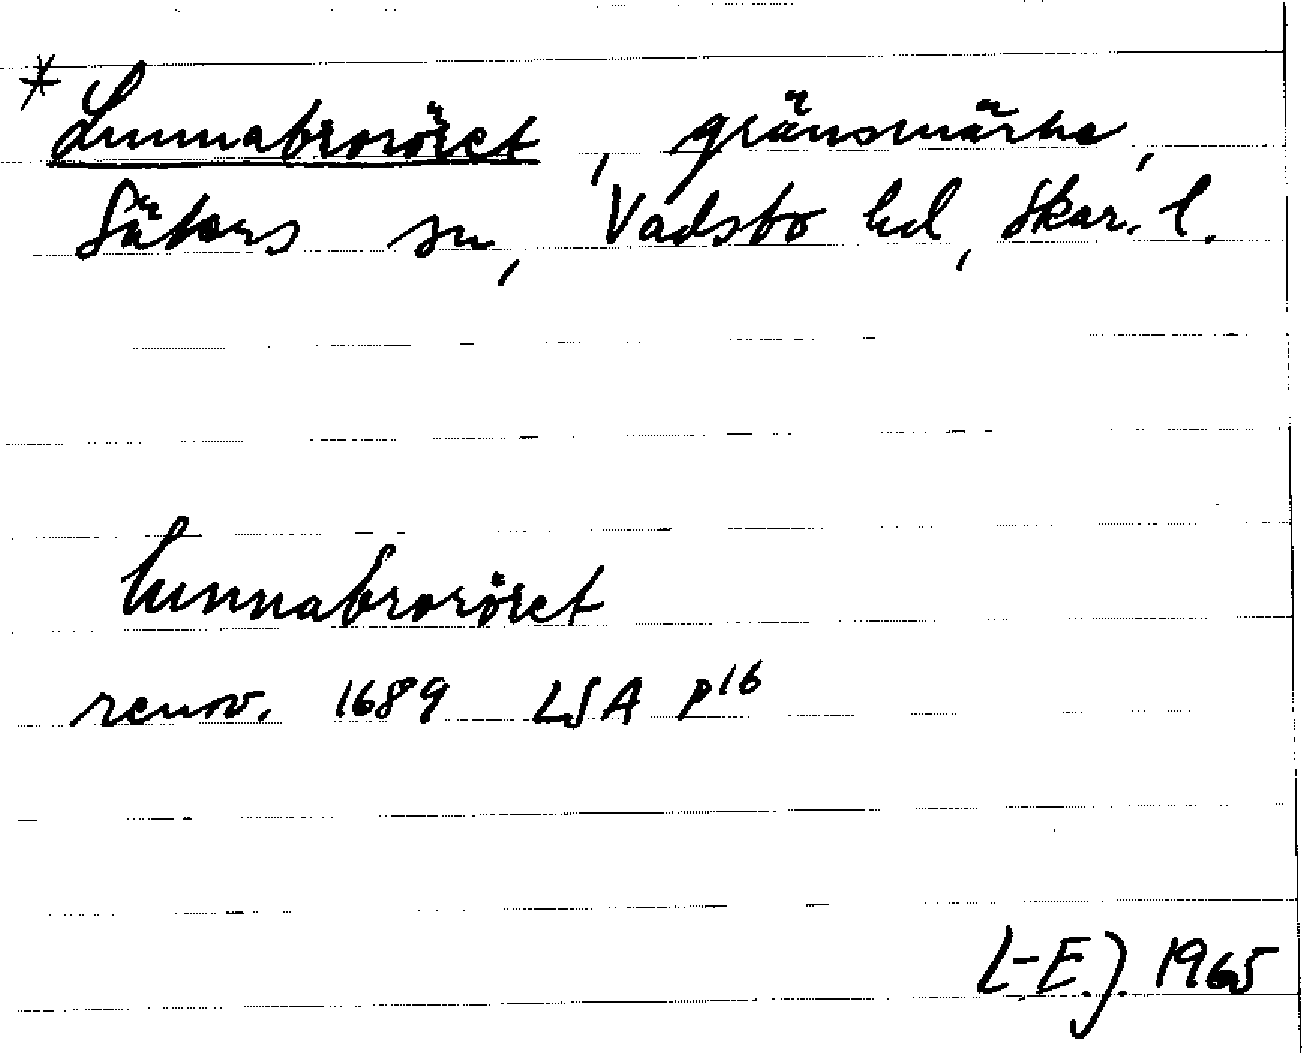 * Lunnabroröret, gränsmärke,
Säters sn, Vadsbo hd, Skar. l.
lunnabroröret
renov. 1689 LSA P16
L-EJ. 1965